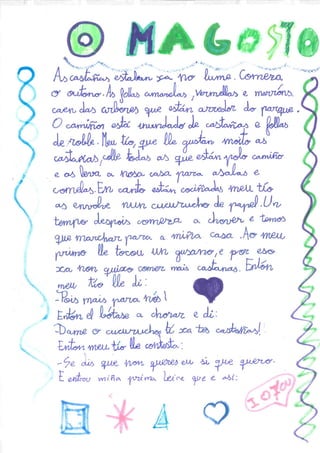 O MAGOSTO
As castañas estaban xa no lume. Comeza
o outono. As follas amarelas, vermellas e marróns
caen das árbores que están arredor do parque.
O camiño está inundado de castañas e follas
de roble. Meu tío, que lle gustan moito as
castañas, colle todas as que están polo camiño
e as leva a nosa casa para asalas e
comelas. En canto están cociñadas meu tío
as envolve nun cucurucho de papel. Un
tempo despois comeza a chover e temos
que marchar para a miña casa. Ao meu
primo lle tocou un gusano, e por eso
xa non quixo comer mais castanas. Entón
meu tío lle di:
-Pois mais para nós!
Entón el bótase a chorar e di:
-Dame o cucurucho, ti xa tes castañas!
Entón meu tío lle contesta:
-Se dis que non queres eu si que quero.
E entrou miña prima Leire que e así: